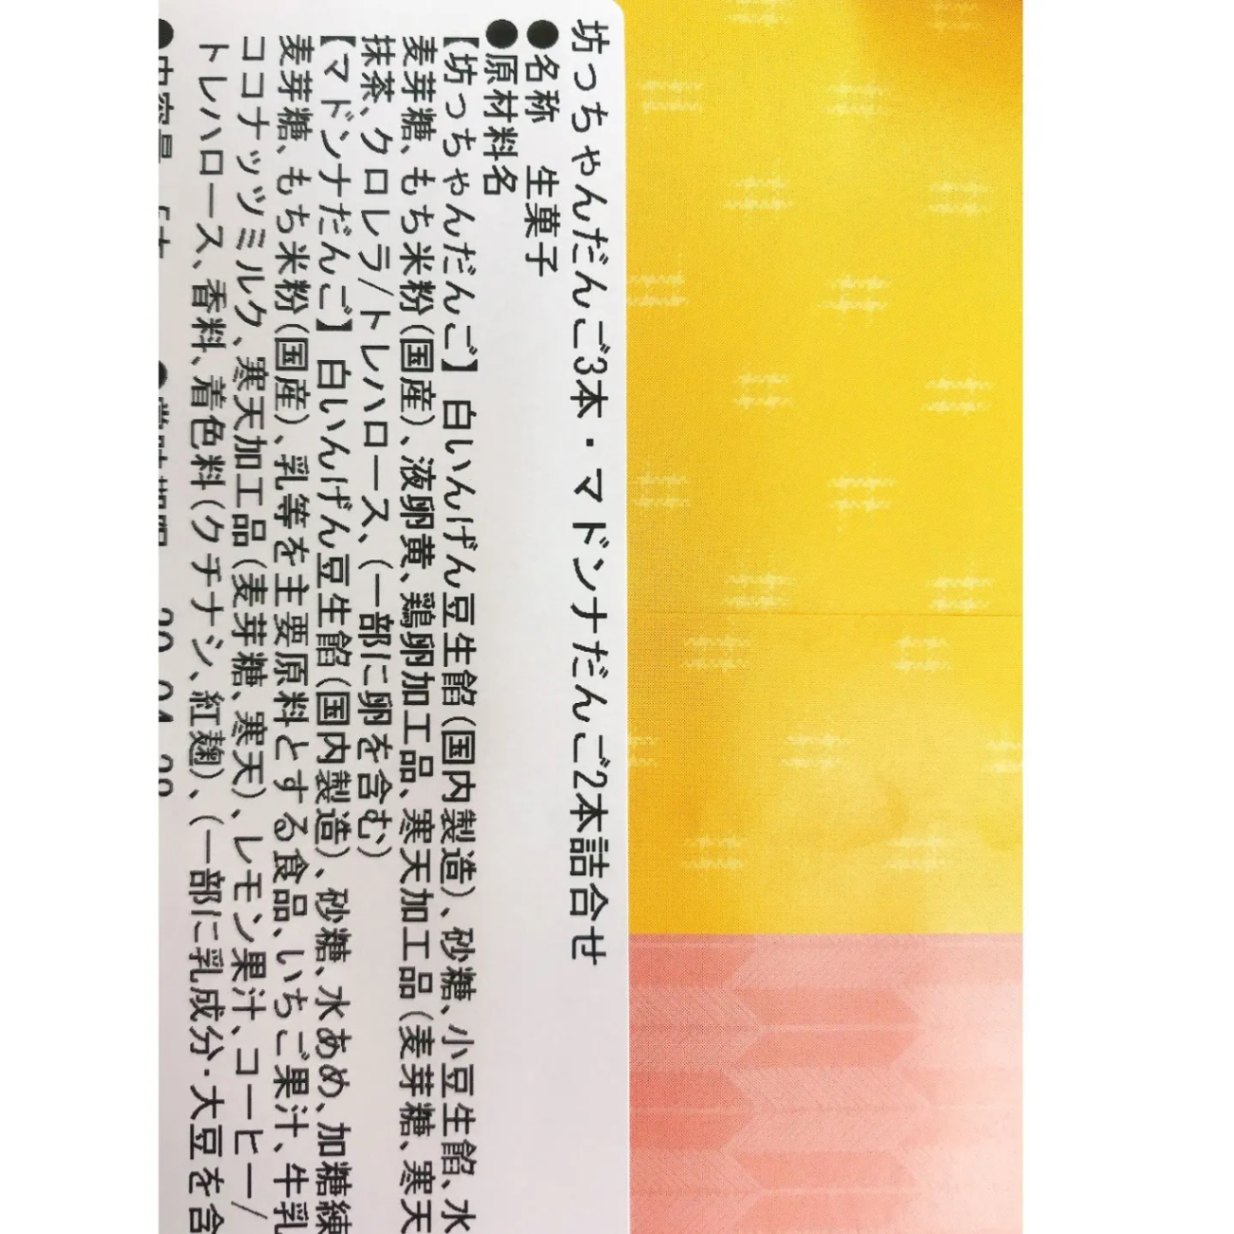 坊っちゃんだんご3本・マドンナだんご2本詰合せ
●名称　生菓子
●原材料名
【坊っちゃんだんご】白いんげん豆生餡(国内製造)、砂糖、小豆生餡、水
麦芽糖、もち米粉(国産)、液卵黄、鶏卵加工品、寒天加工品(麦芽糖、寒天
抹茶、クロレラ/トレハロース、(一部に卵を含む)
【マドンナだんご】白いんげん豆生餡(国内製造)、砂糖、水あめ、加糖練
麦芽糖、もち米粉(国産)、乳等を主要原料とする食品、いちご果汁、牛乳
ココナッツミルク、寒天加工品(麦芽糖、寒天)、レモン果汁、コーヒー/
トレハロース、香料、着色料(クチナシ、紅麹)、(一部に乳成分・大豆を含